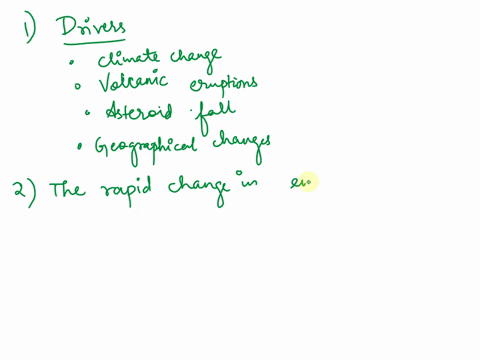 1) Drivers
• Climate change
• Volcanic eruptions
• Asteroid fall
• Geographical changes
2) The rapid change in